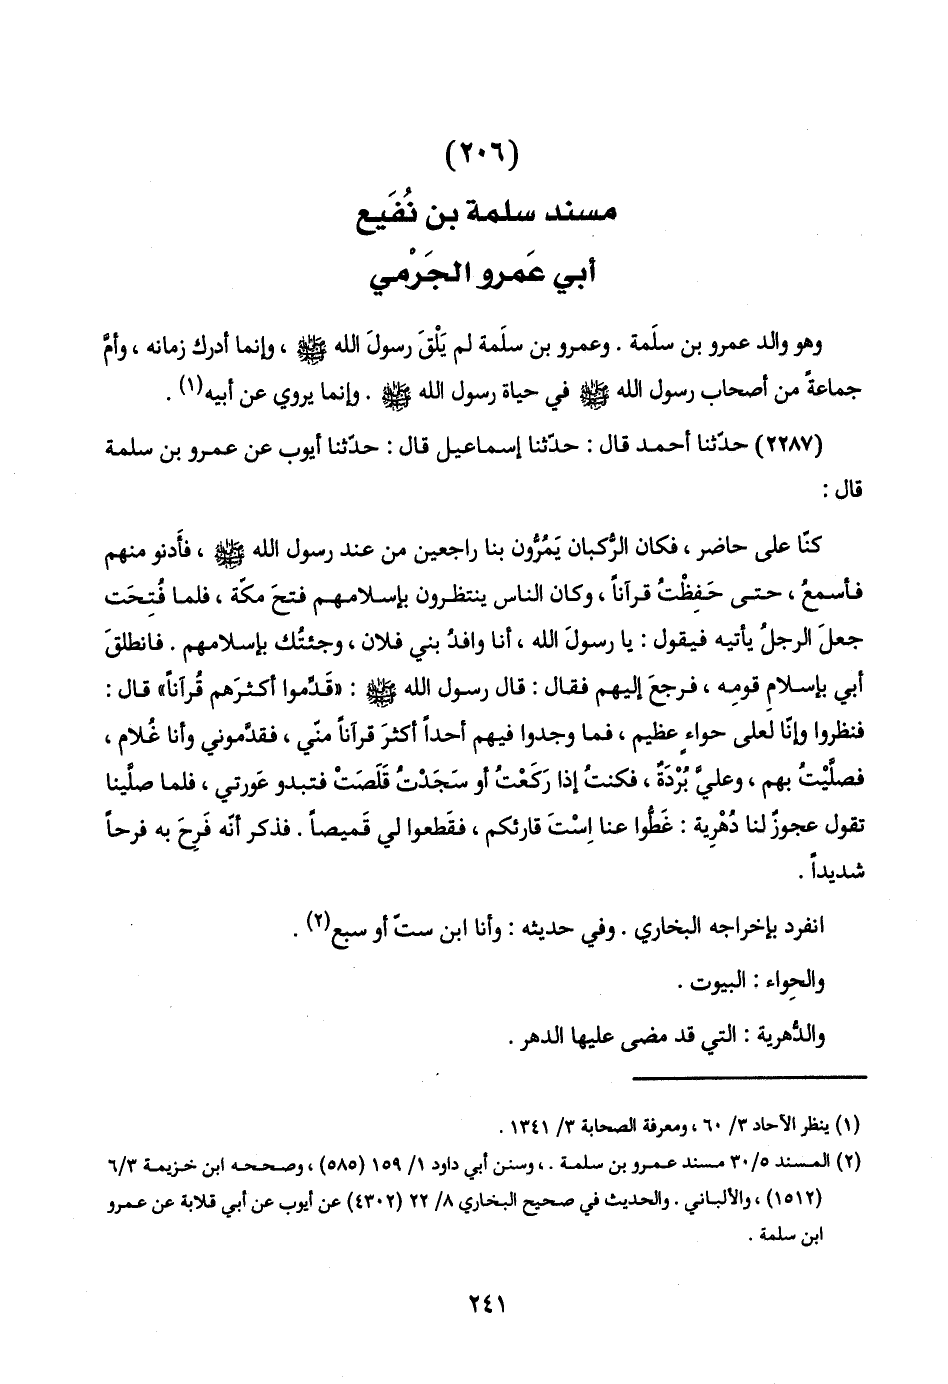 (٢٠٦)
مسند سلمة بن نُفَيع
أبي عَمرو الجَرْمي
وهو والد عمرو بن سلَمة . وعمرو بن سلَمة لم يَلْقَ رسولَ الله ﷺ ، وإنما أدرك زمانه ، وأمَّ
جماعةً من أصحاب رسول الله ﷺ في حياة رسول الله ﷺ . وإنما يروي عن أبيه(١) .
(٢٢٨٧) حدّثنا أحمد قال : حدّثنا إسماعيل قال : حدّثنا أيوب عن عمرو بن سلمة
قال :
كنّا على حاضر ، فكان الرُّكبان يَمُرُّون بنا راجعين من عند رسول الله ﷺ ، فأَدنو منهم
فأسمعُ ، حتى حَفِظْتُ قرآناً ، وكان الناس ينتظرون بإسلامهم فتحَ مكّة ، فلما فُتِحَت
جعلَ الرجلُ يأتيه فيقول : يا رسولَ الله ، أنا وافدُ بني فلان ، وجئتُك بإسلامهم . فانطلقَ
أبي بإسلامِ قومِه ، فرجعَ إليهم فقال : قال رسول الله ﷺ : «قَدِّموا أكثرَهم قُرآناً» قال :
فنظروا وإنّا لعلى حواءٍ عظيم ، فما وجدوا فيهم أحداً أكثرَ قرآناً منّي ، فقدَّموني وأنا غُلام ،
فصلَّيْتُ بهم ، وعليَّ بُرْدَةٌ ، فكنتُ إذا رَكَعْتُ أو سَجَدْتُ قَلَصَتْ فتبدو عَورتي ، فلما صلَّينا
تقول عجوزٌ لنا دُهْرِية : غَطُّوا عنا اِسْتَ قارئكم ، فقَطعوا لي قَميصاً . فذكر أنّه فَرِحَ به فرحاً
شديداً .
انفرد بإخراجه البخاري . وفي حديثه : وأنا ابن ستّ أو سبع(٢) .
والحِواء : البيوت .
والدُّهرية : التي قد مضى عليها الدهر .
(١) ينظر الآحاد ٣/ ٦٠ ، ومعرفة الصحابة ٣/ ١٣٤١ .
(٢) المسند ٣٠/٥ مسند عمرو بن سلمة . ، وسنن أبي داود ١/ ١٥٩ (٥٨٥) ، وصححه ابن خزيمة ٦/٣
(١٥١٢) ، والألباني . والحديث في صحيح البخاري ٨/ ٢٢ (٤٣٠٢) عن أيوب عن أبي قلابة عن عمرو
ابن سلمة .
٢٤١